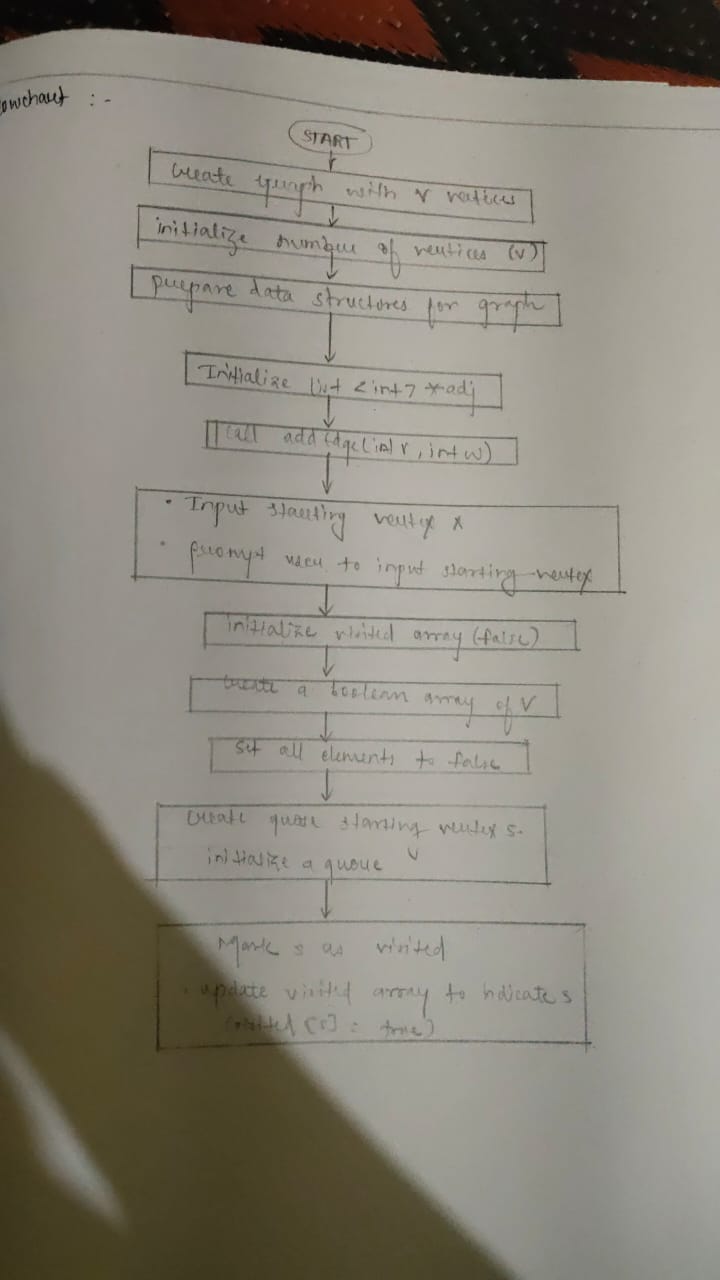 owchart :-
START
Create graph with V vertices
initialize number of vertices (v)
prepare data structures for graph
Initialize list <int> *adj
Call addEdge(int v, int w)
• Input starting vertex
• prompt user to input starting vertex
initialize visited array (false)
Create a boolean array of V
set all elements to false
Create queue starting vertex s.
initialize a queue
Mark s as visited
• update visited array to indicate s
(visited [s] = true)